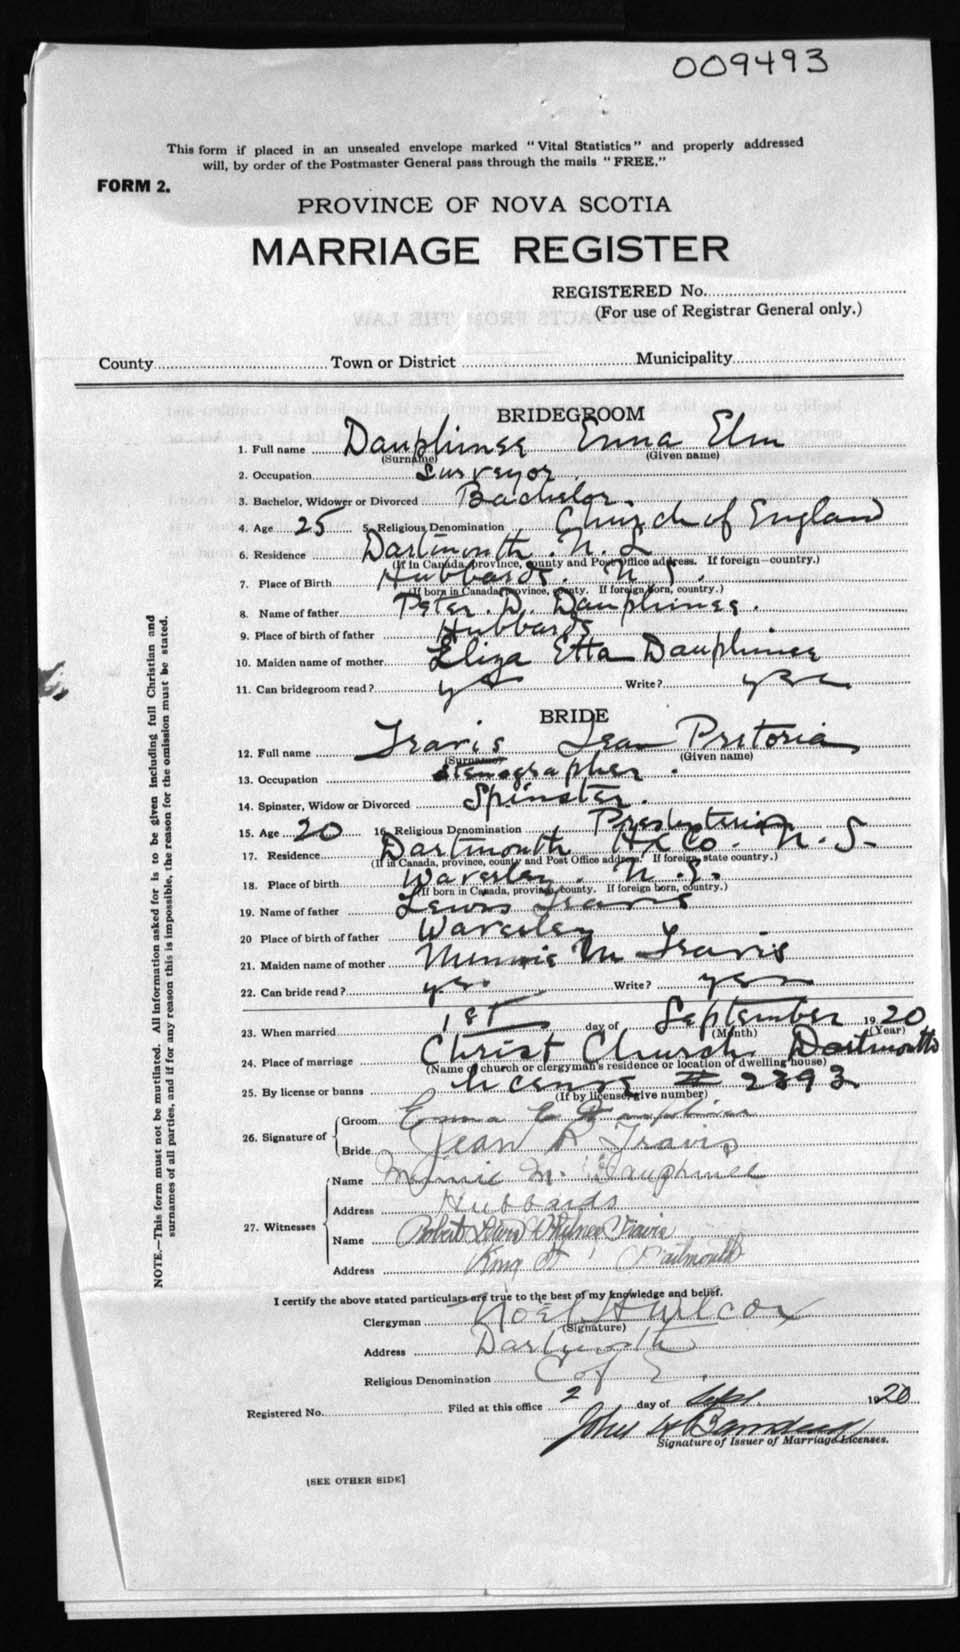 009493
This form if placed in an unsealed envelope marked "Vital Statistics" and properly addressed
will, by order of the Postmaster General pass through the mails "FREE."
FORM 2.
PROVINCE OF NOVA SCOTIA
MARRIAGE REGISTER
REGISTERED No.
(For use of Registrar General only.)
County Town or District Municipality
BRIDEGROOM
1. Full name Dauphinee Enna Elm
(Surname) (Given name)
2. Occupation Surveyor
3. Bachelor, Widower or Divorced Bachelor.
4. Age 25 5. Religious Denomination Church of England
6. Residence Dartmouth. N. S
(If in Canada, province, county and Post Office address. If foreign—country.)
7. Place of Birth Hubbards. N S.
(If born in Canada, province, county. If foreign born, country.)
8. Name of father Peter. D. Dauphinee.
9. Place of birth of father Hubbards
10. Maiden name of mother Eliza Etta Dauphinee
11. Can bridegroom read? yes Write? yes
BRIDE
12. Full name Travis Jean Pretoria
(Surname) (Given name)
13. Occupation Stenographer.
14. Spinster, Widow or Divorced Spinster.
15. Age 20 16. Religious Denomination Presbyterian
17. Residence Dartmouth Hx Co. N. S.
(If in Canada, province, county and Post Office address. If foreign, state country.)
18. Place of birth Waverley. N. S.
(If born in Canada, province, county. If foreign born, country.)
19. Name of father Lewis Travis
20 Place of birth of father Waverley
21. Maiden name of mother Minnie M Travis
22. Can bride read? yes Write? yes
23. When married 1st day of September 1920
(Month) (Year)
24. Place of marriage Christ Church Dartmouth
(Name of church or clergyman's residence or location of dwelling house)
25. By license or banns license # 2393
(If by license, give number)
26. Signature of Groom Enna E Dauphinee
Bride Jean P Travis
27. Witnesses Name Minnie M. Dauphinee
Address Hubbards
Name Robert Lewis Whidney Travis
Address King St Dartmouth
I certify the above stated particulars are true to the best of my knowledge and belief.
Clergyman Noel H Wilcox
(Signature)
Address Dartmouth
Religious Denomination C of E.
Registered No. Filed at this office 2 day of Sept. 1920
John
Signature of Issuer of Marriage Licenses.
[SEE OTHER SIDE]
NOTE.—This form must not be mutilated. All information asked for is to be given including full Christian and
surnames of all parties, and if for any reason this is impossible, the reason for the omission must be stated.